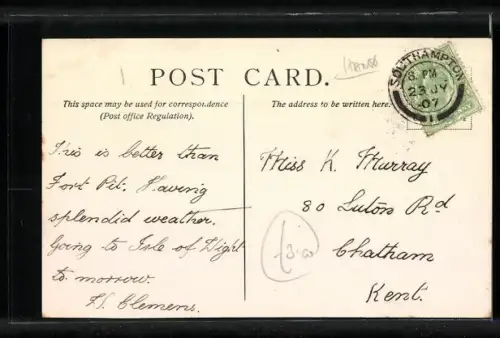 POST CARD.
This space may be used for correspondence
(Post office Regulation).
The address to be written here.
SOUTHAMPTON
6 PM
23 JY
07
This is better than
Fort Pit. Having
splendid weather.
Going to Isle of Wight
to morrow.
H. Clemens.
Miss K. Murray
80 Luton Rd
Chatham
Kent.